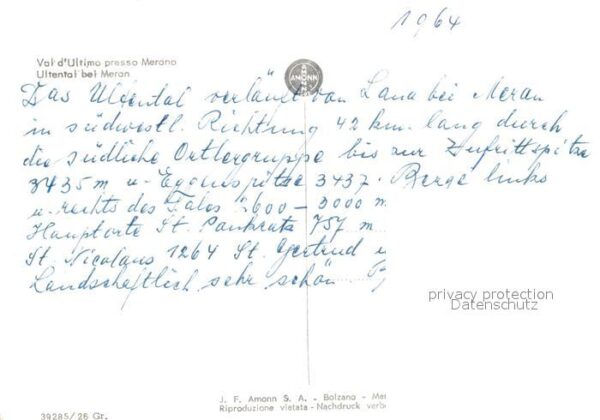 1964
Val d'Ultimo presso Merano
Ultental bei Meran
AMONN
Das Ultental verläuft von Lana bei Meran
in südwestl. Richtung 42 km. lang durch
die südliche Ortlergruppe bis zur Zufrittspitze
3435 m u. Eggenspitze 3437. Berge links
u. rechts des Tales 2600 – 3000 m
Hauptorte St. Pankratz 757 m
St. Nicolaus 1264 St. Gertrud
Landschaftlich sehr schön
privacy protection
Datenschutz
J. F. Amonn S. A. - Bolzano -
Riproduzione vietata - Nachdruck
39285/26 Gr.